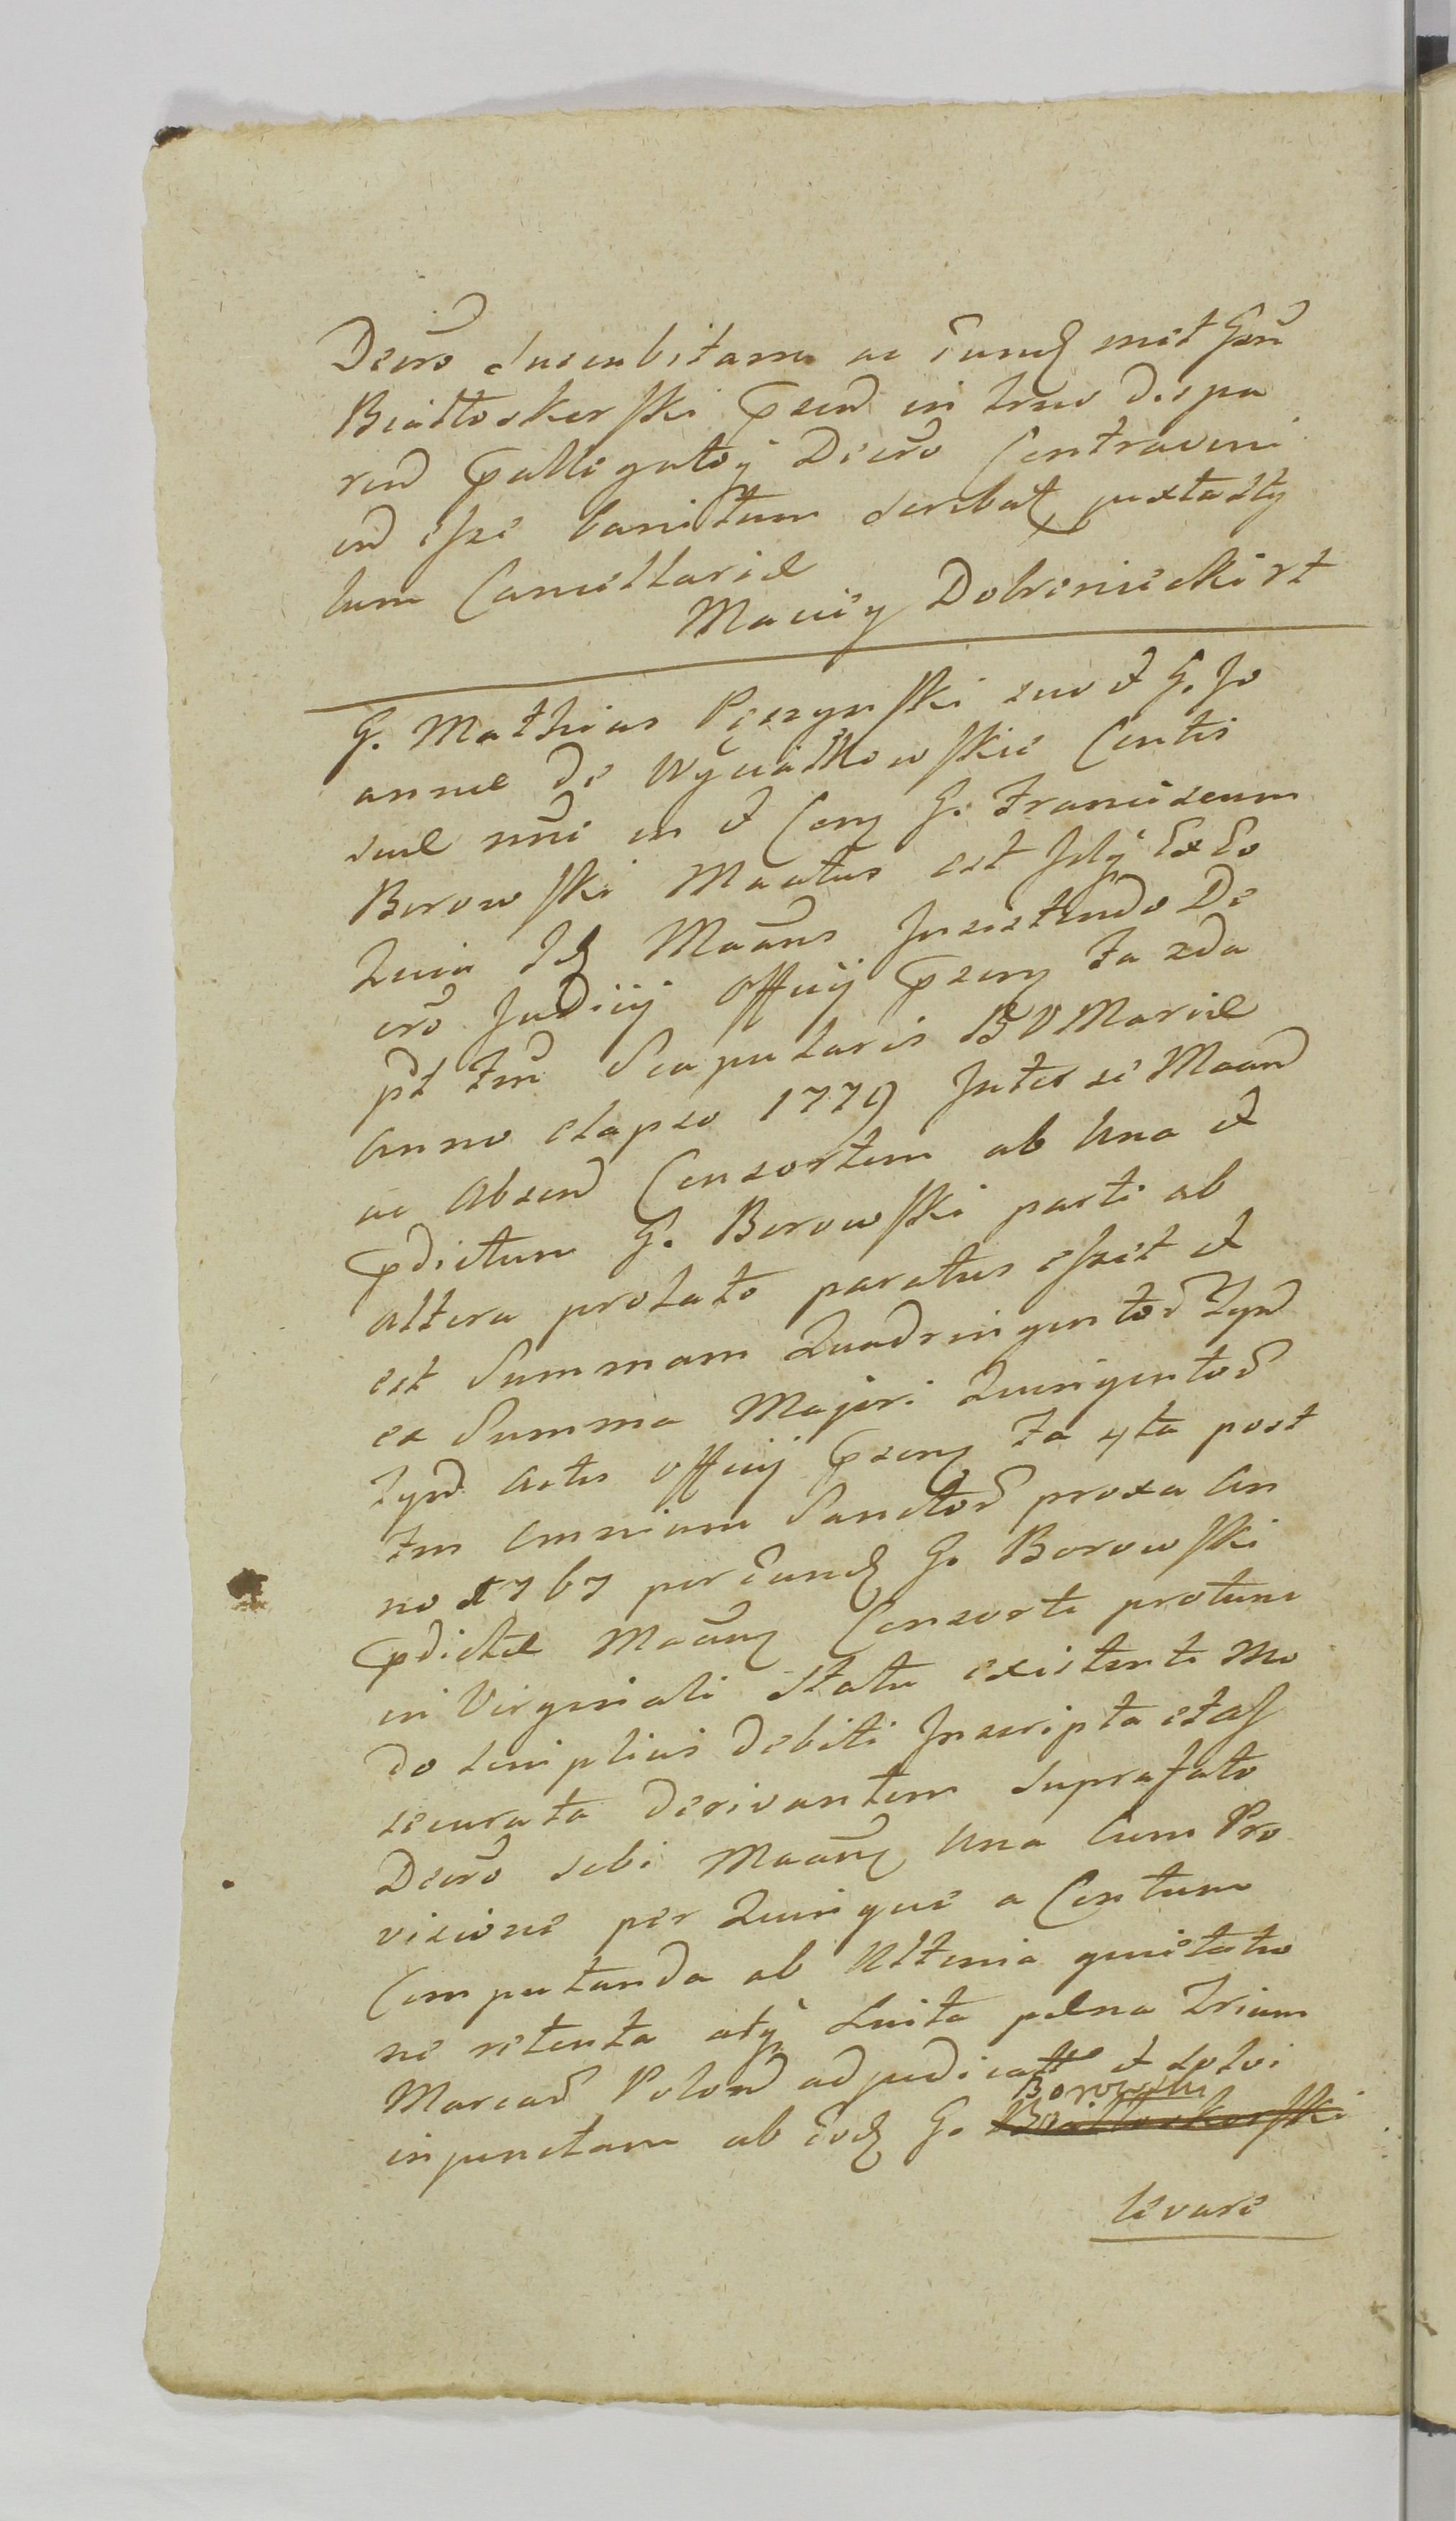 Decro succubitam ac eund met Gsū
Białłoskorski psend in lrno dispa
rend palligatoÿ Decro Contraveni
end esse banitum scribat juxta sty
lum Cancellariæ
Maciey Dobrzniecki rt
G. Mathias Pęczynski suo et G. Jo
annæ de Wyciałkowskie Contis
suæ nni in et Con G. Franciscum
Borowski Mactus est Jstÿ Ex Eo
Quia Id Maans Insistendo De
cro Judicij Officij psen fa 2da
pt Fm Scapularis B V Mariæ
Anno elapso 1779 Inter se Maand
ac Absend Consortem ab Una et
pdictum G. Borowski parti ab
altera prolato paratus esset et
est Summam Quadringentor flpd
ex Summa Majori Quingentor
flpd Actis Officij psen fa 4ta post
Fm Omnium Sanctor proxa An
no 1767 per Eund G. Borowski
pdictæ Maan Consorti protunc
in Virginali Statu existenti Mo
do simplicis debiti Inscripta et as
securata derivantem suprafato
Decro sibi Maan Una Cum Pro
visione per Quinque a Centum
Computanda ab Ultima quietatio
ne retenta atÿ Luita pæna Trium
Marcar Polond adjudicatt et solvi
injunctam ab Eod G. Borowski Białłoskorski
levare